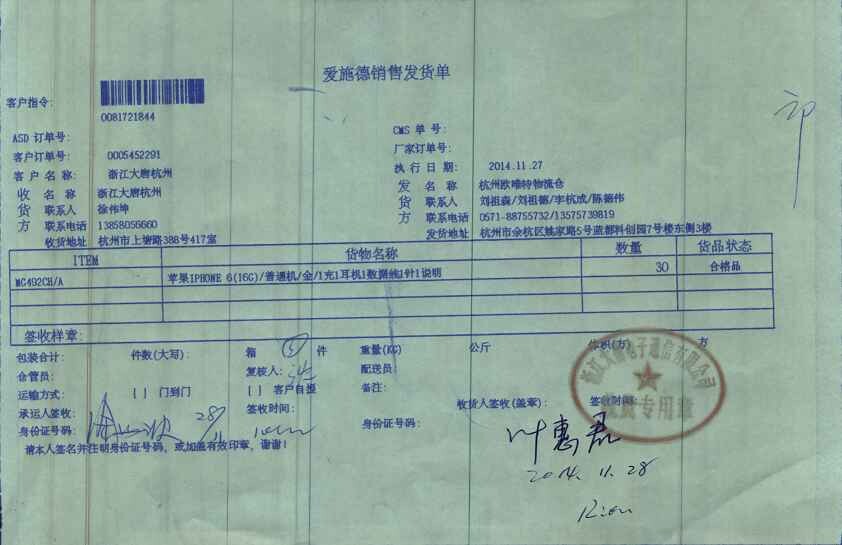 爱施德销售发货单
客户指令:
0081721844
ASD 订单号:
CMS 单 号:
客户订单号: 0005452291
厂家订单号:
客 户 名 称: 浙江大唐杭州
执 行 日 期: 2014.11.27
收 名 称 浙江大唐杭州
发 名 称 杭州欧唯特物流仓
货 联系人 徐伟坤
货 联系人 刘祖森/刘祖德/李杭成/陈德伟
方 联系电话 13858056660
方 联系电话 0571-88755732/13575739819
收货地址 杭州市上塘路388号417室
发货地址 杭州市余杭区姚家路5号蓝都科创园7号楼东侧3楼
ITEM 货物名称 数量 货品状态
MG492CH/A 苹果IPHONE 6(16G)/普通机/金/1充1耳机1数据线1针1说明 30 合格品
签收样章:
包装合计: 件数(大写): 箱 件 重量(KG) 公斤 体积(方) 方
仓管员: 复核人: 配送员:
运输方式: [ ] 门到门 [ ] 客户自提 备注:
承运人签收: 签收时间: 收货人签收(盖章): 签收时间:
身份证号码: 身份证号码:
请本人签名并注明身份证号码，或加盖有效印章，谢谢！
28/11
叶惠君
2014. 11. 28
收货专用章